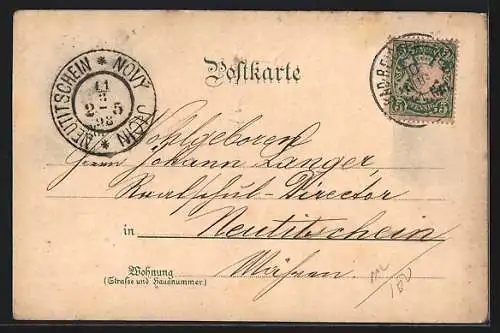 Postkarte
NEUTITSCHEIN * NOVY JIČÍN *
11
2-5
98
5 PFENNIG 5
Wohlgeboren
Herrn Johann Langer,
Realschul-Director
in Neutitschein
Mähren
Wohnung
(Straße und Hausnummer.)